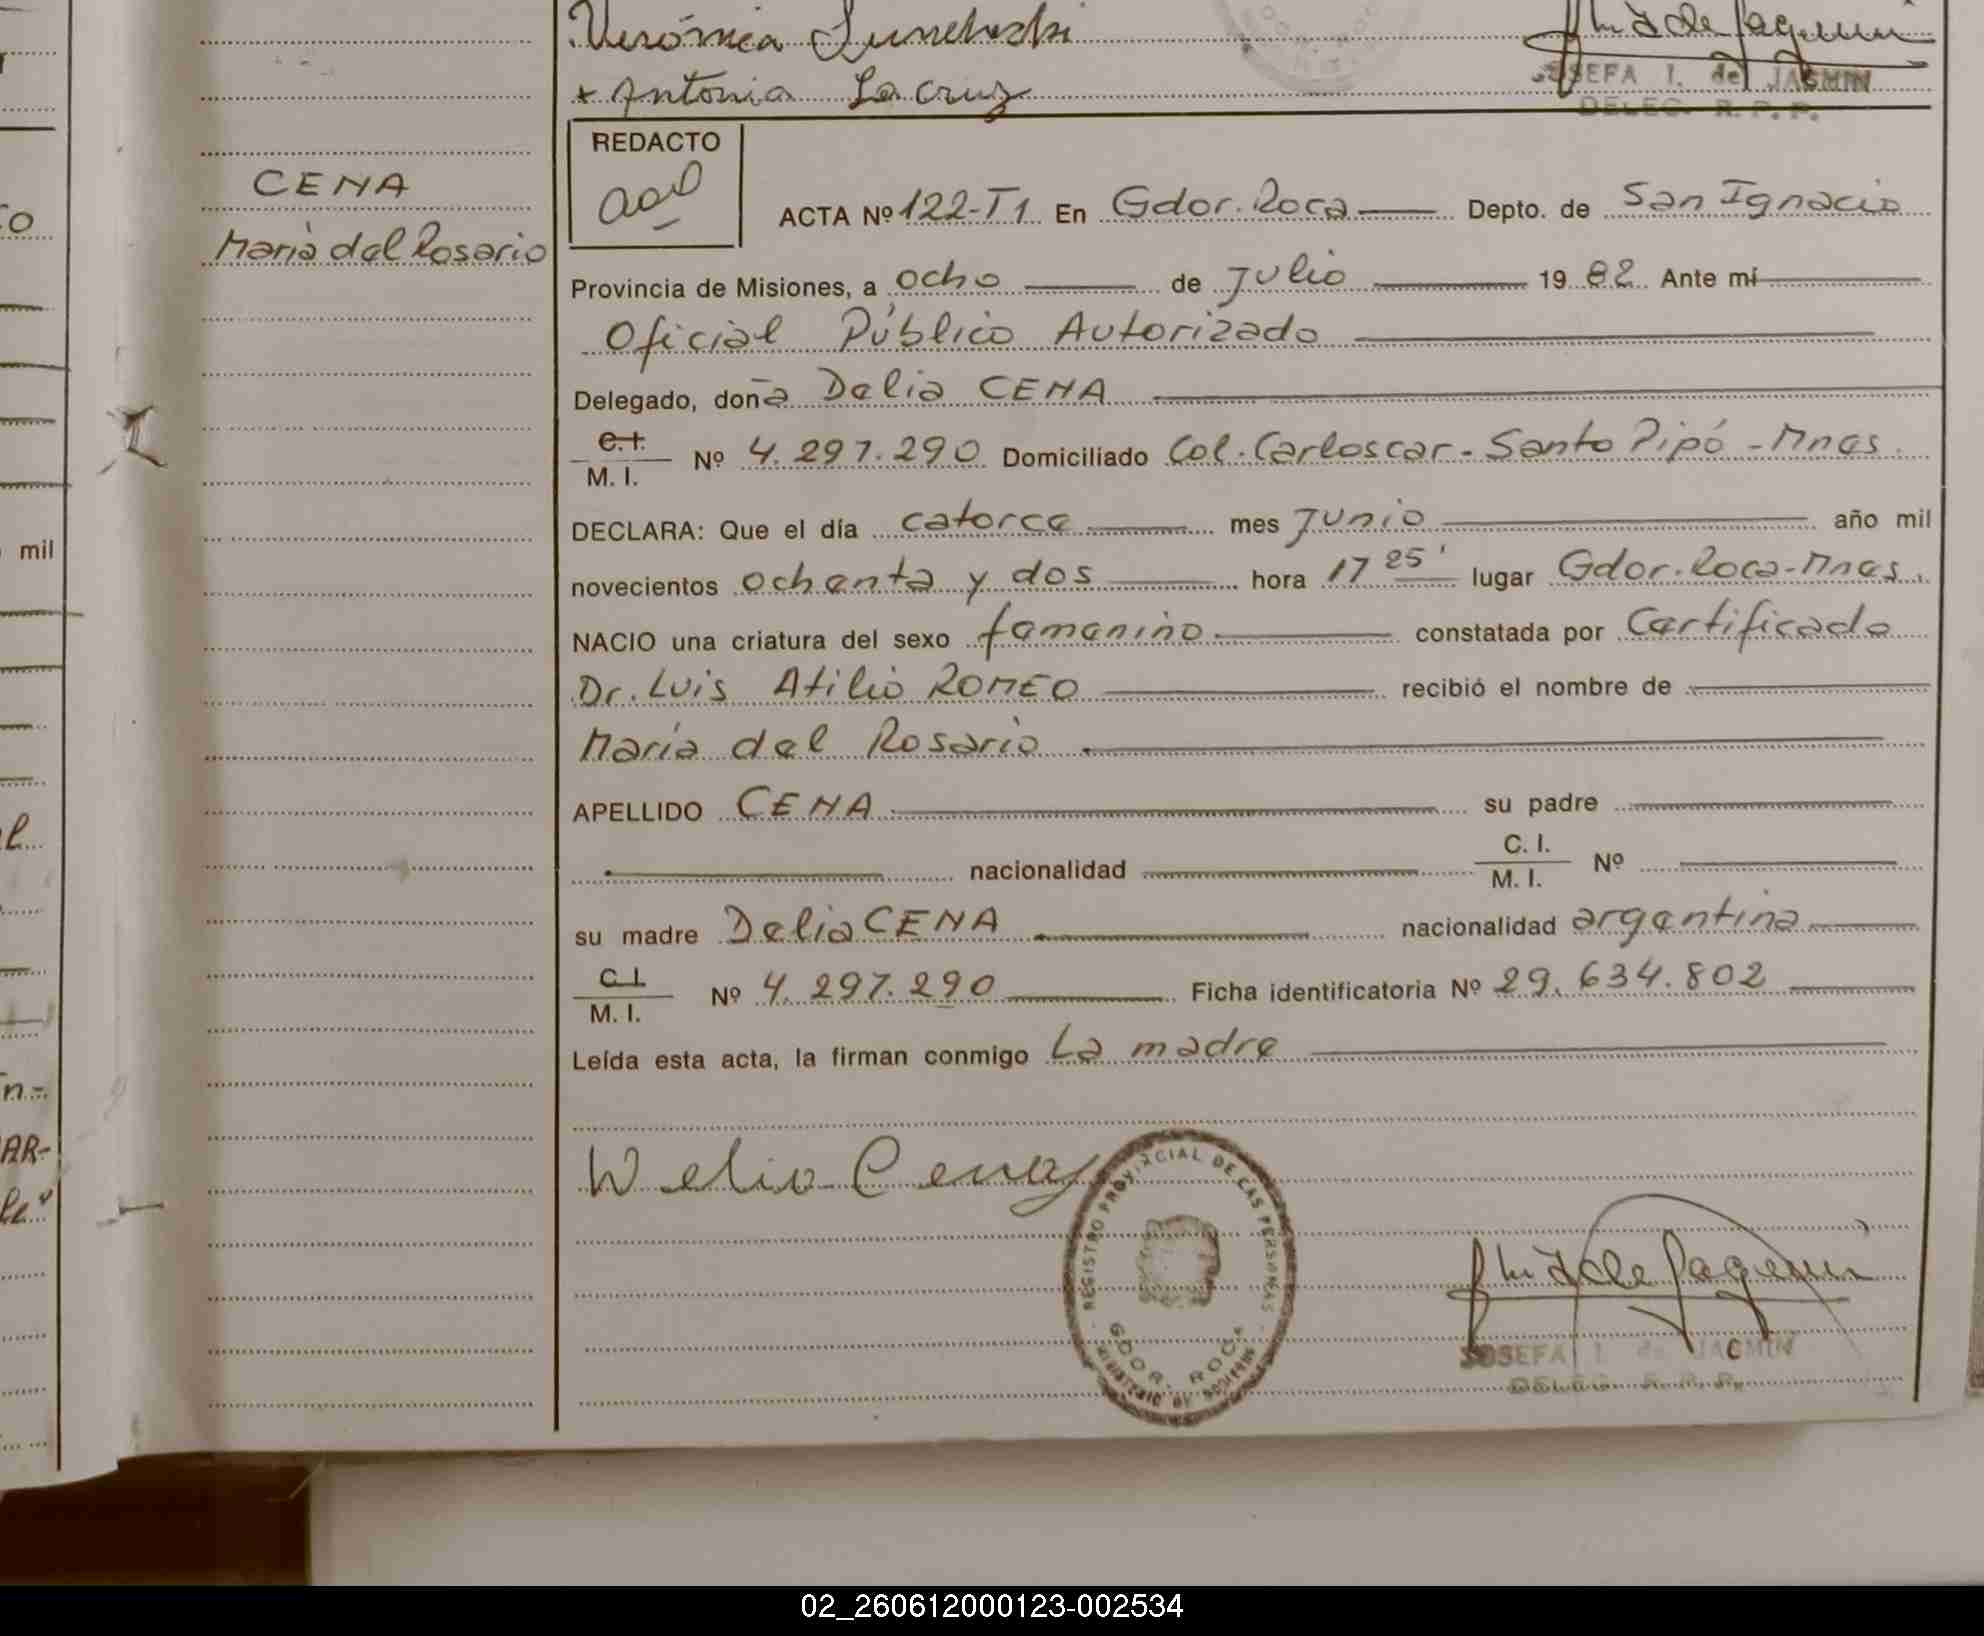 Verónica
+ Antonia La Cruz
JOSEFA I. de JASMIN
DELEG. R. P. P.
CENA
María del Rosario
REDACTO
ACTA Nº 122-T1 En Gdor. Roca Depto. de San Ignacio
Provincia de Misiones, a ocho de Julio 19 82 Ante mí
Oficial Público Autorizado
Delegado, doña Delia CENA
C.I. M. I. Nº 4.297.290 Domiciliado Col. Carloscar - Santo Pipó - Mnes.
DECLARA: Que el día catorce mes Junio año mil
novecientos ochenta y dos hora 17 25' lugar Gdor. Roca - Mnes.
NACIO una criatura del sexo femenino constatada por Certificado
Dr. Luis Atilio ROMEO recibió el nombre de
María del Rosario
APELLIDO CENA su padre
nacionalidad C. I. M. I. Nº
su madre Delia CENA nacionalidad argentina
C.I. M. I. Nº 4.297.290 Ficha identificatoria Nº 29.634.802
Leída esta acta, la firman conmigo La madre
Welia Cena
REGISTRO PROVINCIAL DE LAS PERSONAS
GDOR. ROCA
MINISTERIO DE GOBIERNO
JOSEFA I. de JASMIN
DELEG. R. P. P.
mil
02_260612000123-002534